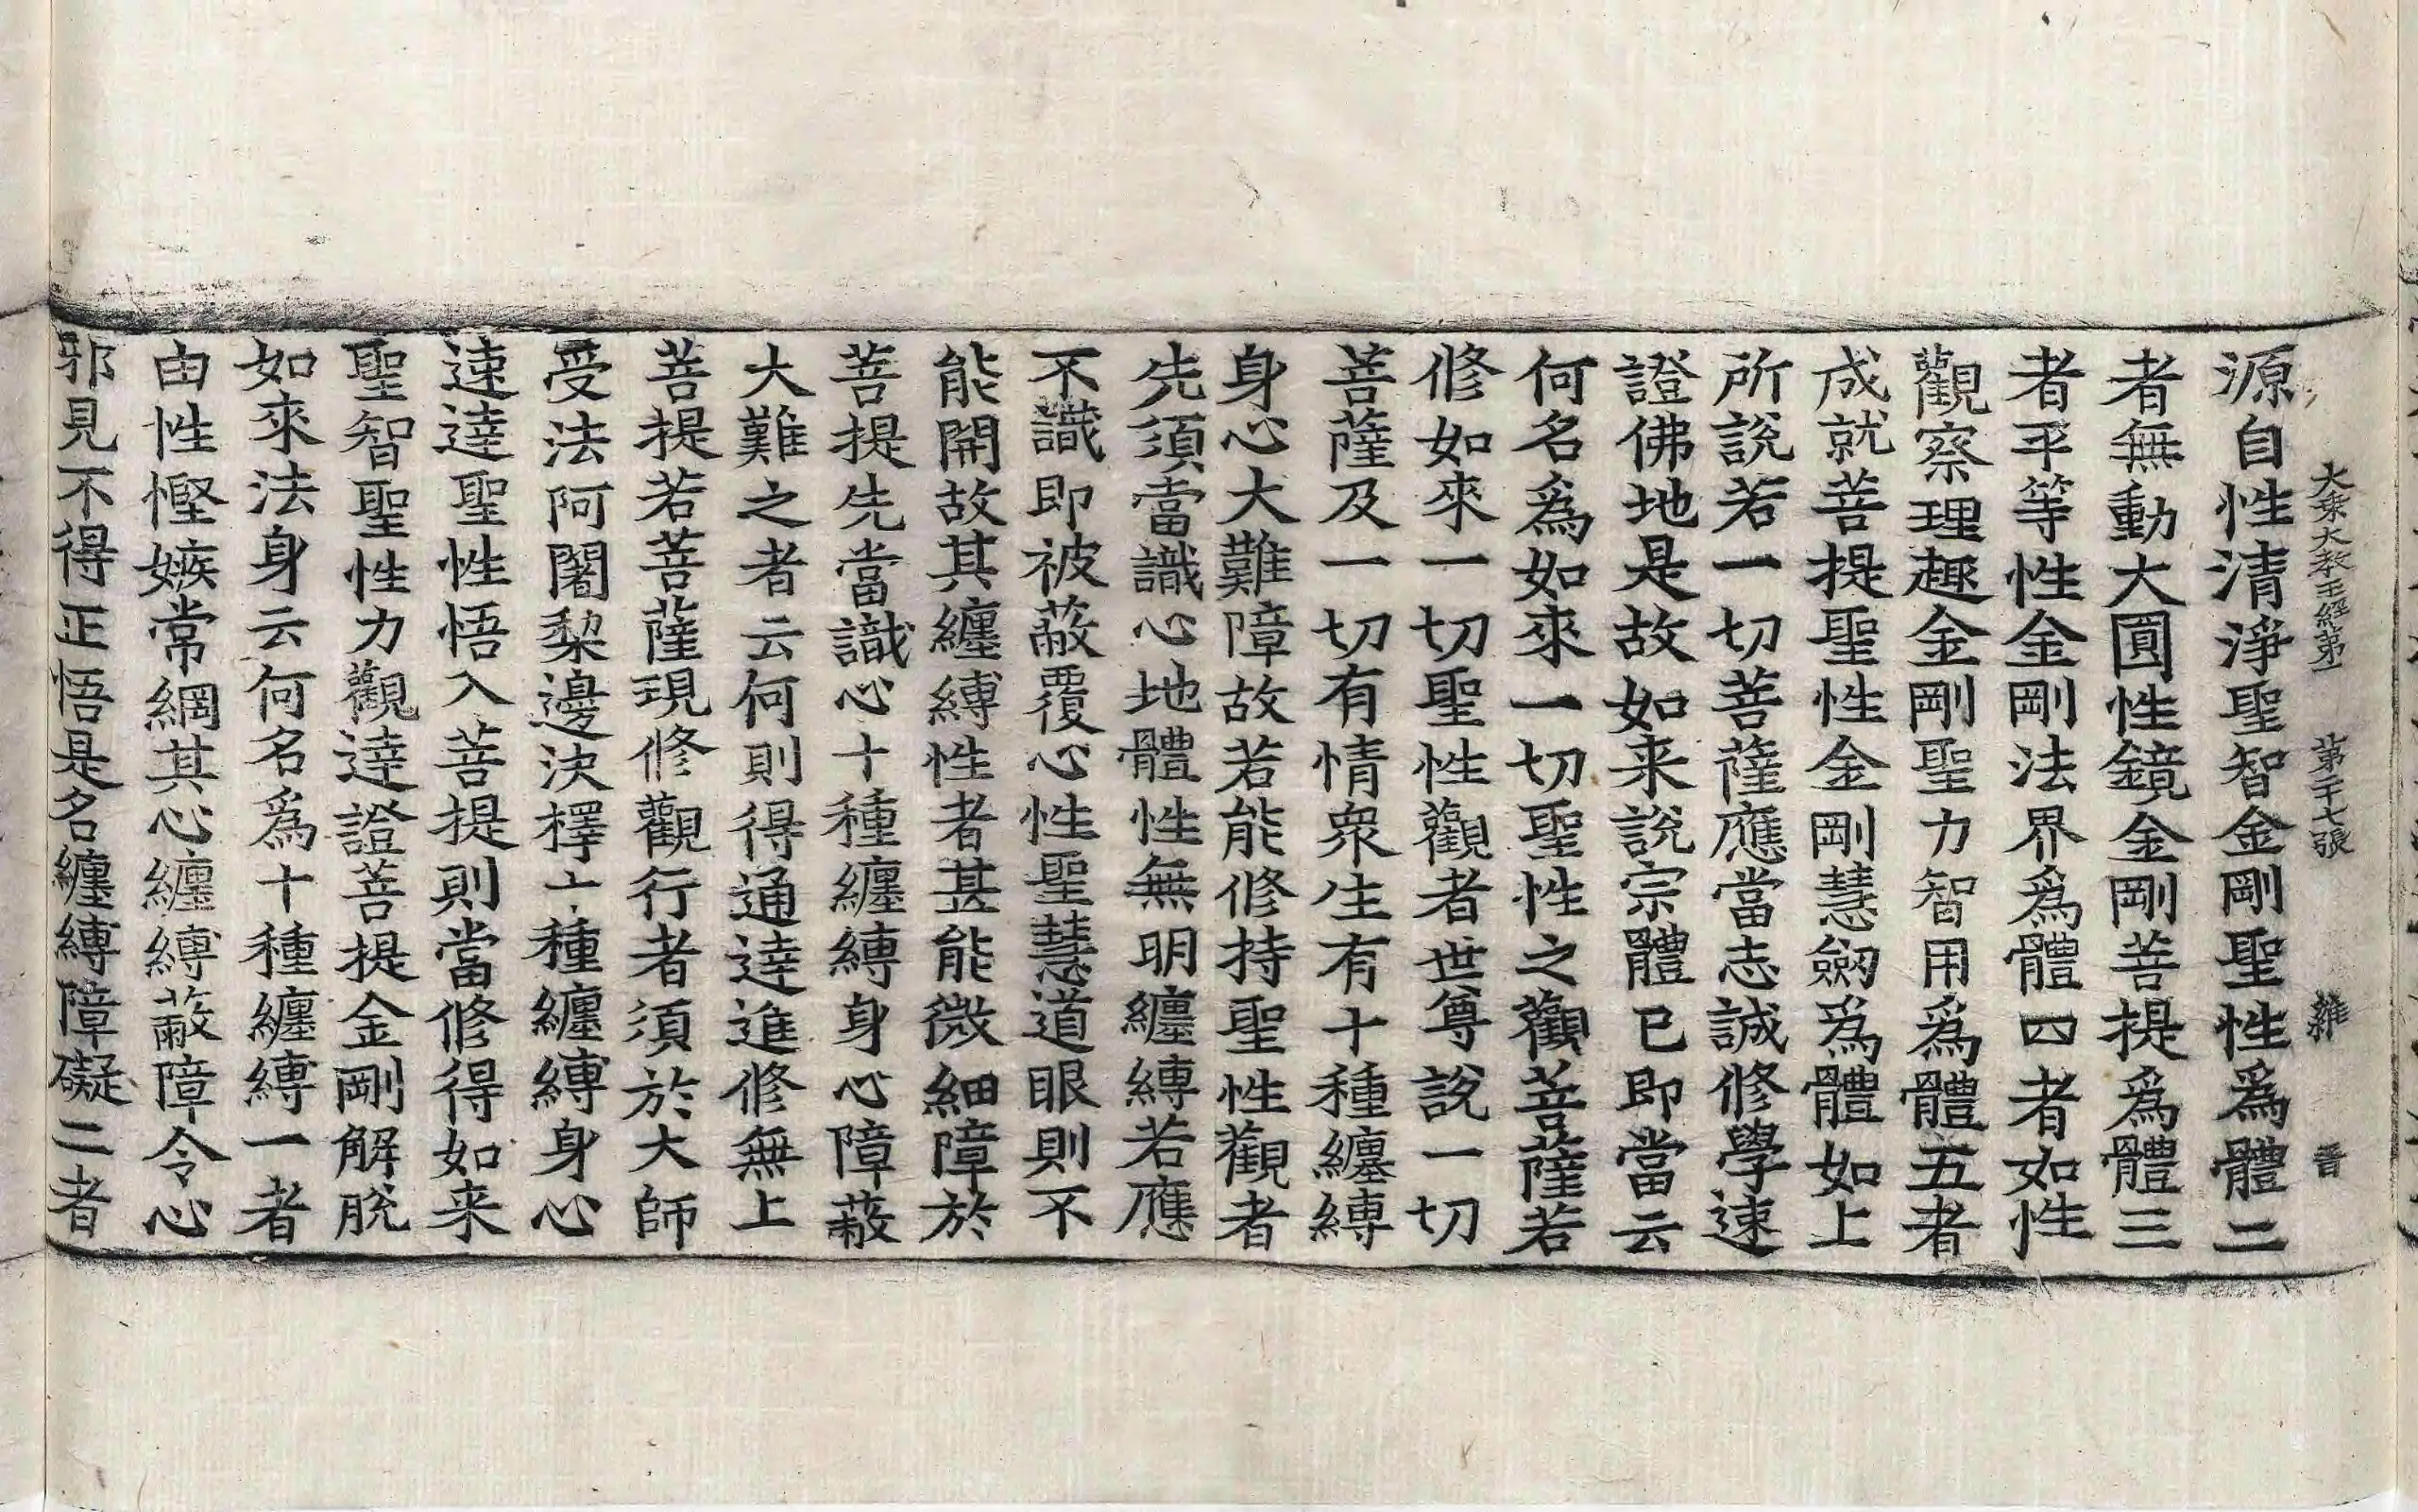 大乘大教王經第一 第二十七張 雜 晋
源自性清淨聖智金剛聖性爲體二
者無動大圓性鏡金剛菩提爲體三
者平等性金剛法界爲體四者如性
觀察理趣金剛聖力智用爲體五者
成就菩提聖性金剛慧劒爲體如上
所說若一切菩薩應當志誠修學速
證佛地是故如来說宗體已即當云
何名爲如來一切聖性之觀菩薩若
修如來一切聖性觀者世尊說一切
菩薩及一切有情衆生有十種纏縛
身心大難障故若能修持聖性觀者
先須當識心地體性無明纏縛若應
不識即被蔽覆心性聖慧道眼則不
能開故其纏縛性者甚能微細障於
菩提先當識心十種纏縛身心障蔽
大難之者云何則得通達進修無上
菩提若菩薩現修觀行者須於大師
受法阿闍梨邊決擇十種纏縛身心
速達聖性悟入菩提則當修得如来
聖智聖性力觀達證菩提金剛解脫
如來法身云何名爲十種纏縛一者
由性慳嫉常綱其心纏縛蔽障令心
邪見不得正悟是名纏縛障礙二者